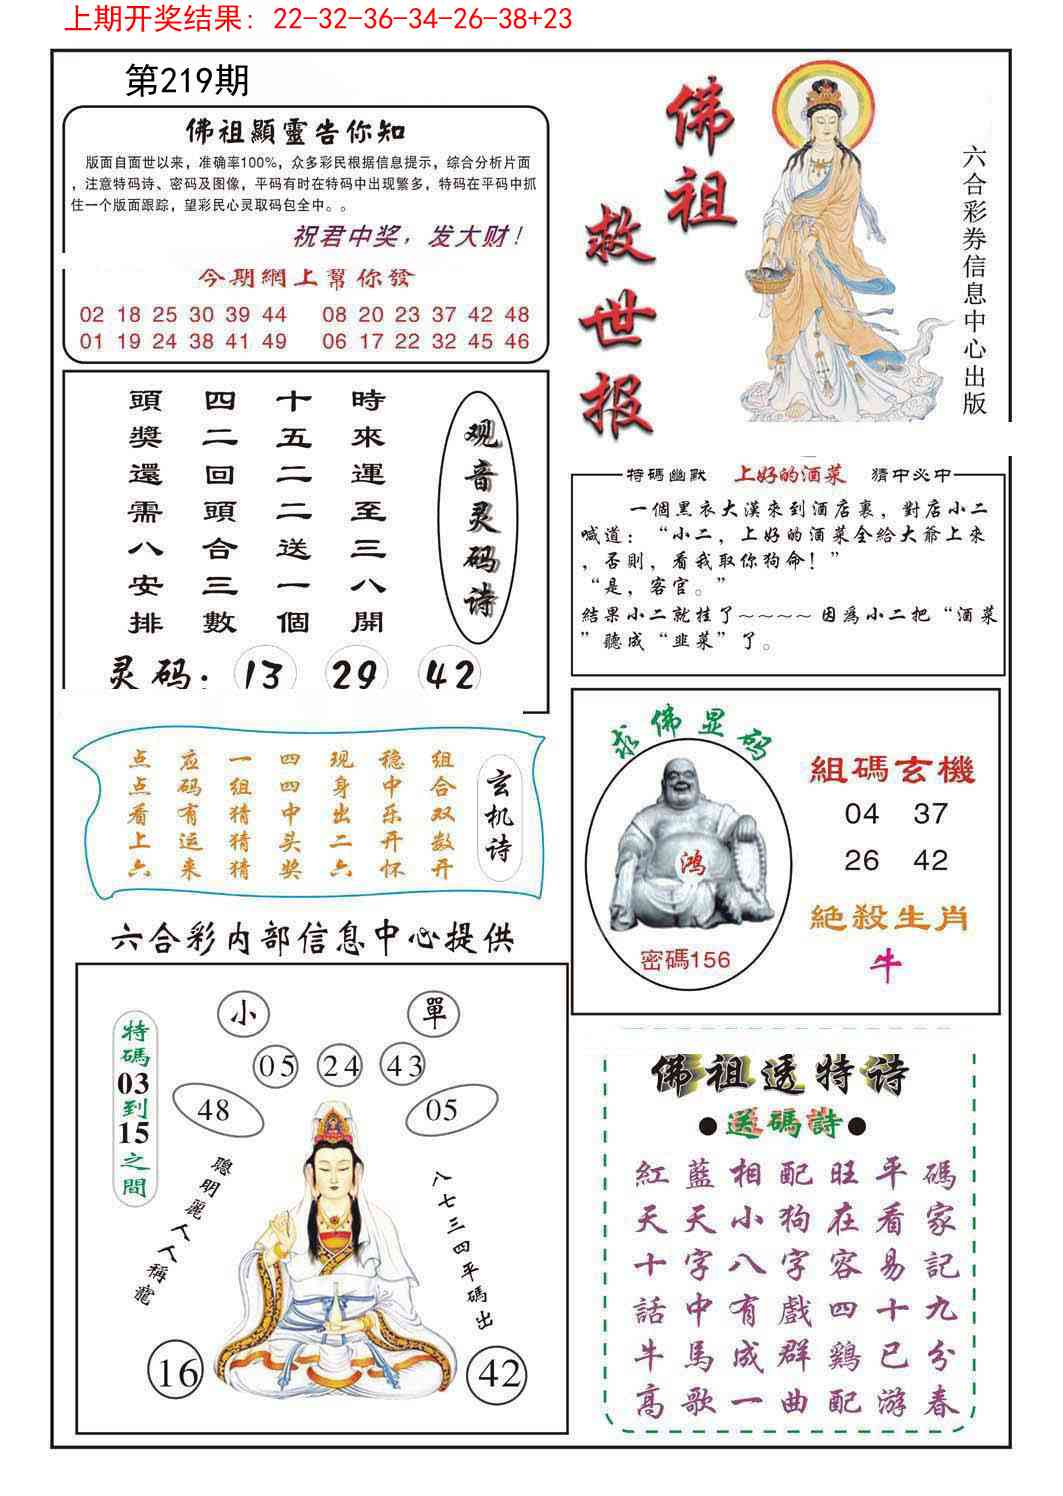 上期开奖结果：22-32-36-34-26-38+23
第219期
佛祖顯靈告你知
版面自面世以来，准确率100%，众多彩民根据信息提示，综合分析片面
，注意特码诗、密码及图像，平码有时在特码中出现繁多，特码在平码中抓
住一个版面跟踪，望彩民心灵取码包全中。。
祝君中奖，发大财！
今期網上幫你發
02 18 25 30 39 44 08 20 23 37 42 48
01 19 24 38 41 49 06 17 22 32 45 46
佛祖
救世报
六合彩券信息中心出版
观音灵码诗
時來運至三八開
十五二二送一個
四二回頭合三數
頭獎還需八安排
灵码：13 29 42
特碼幽默 上好的酒菜 猜中必中
一個黑衣大漢來到酒店裏，對店小二
喊道：“小二，上好的酒菜全給大爺上來
，否則，看我取你狗命！”
“是，客官。”
結果小二就挂了～～～～因爲小二把“酒菜
”聽成“韭菜”了。
玄机诗
组合双数开
稳中乐开怀
现身出二六
四四中头奖
一组猜猜猜
应码有运来
点点看上六
求佛显码
鸿
密碼156
組碼玄機
04 37
26 42
絶殺生肖
牛
六合彩内部信息中心提供
特碼03到15之間
小 單
05 24 43
48 05
聰明麗人人稱寵
八七三四平碼出
16 42
佛祖透特诗
●送碼詩●
紅藍相配旺平碼
天天小狗在看家
十字八字容易記
話中有戲四十九
牛馬成群鷄已分
高歌一曲配游春